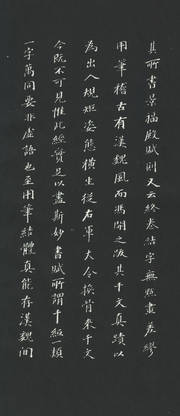 其所書景福殿賦則又云終卷結字無點畫差繆
用筆稽古有漢魏風而馮開之跋其千文真蹟以
為出入規矩姿態橫生從右軍大令換骨來千文
今既不可見惟此經實足以盡斯妙書賦所謂千組一類
一字萬同要非虛語也至用筆結體真能存漢魏間